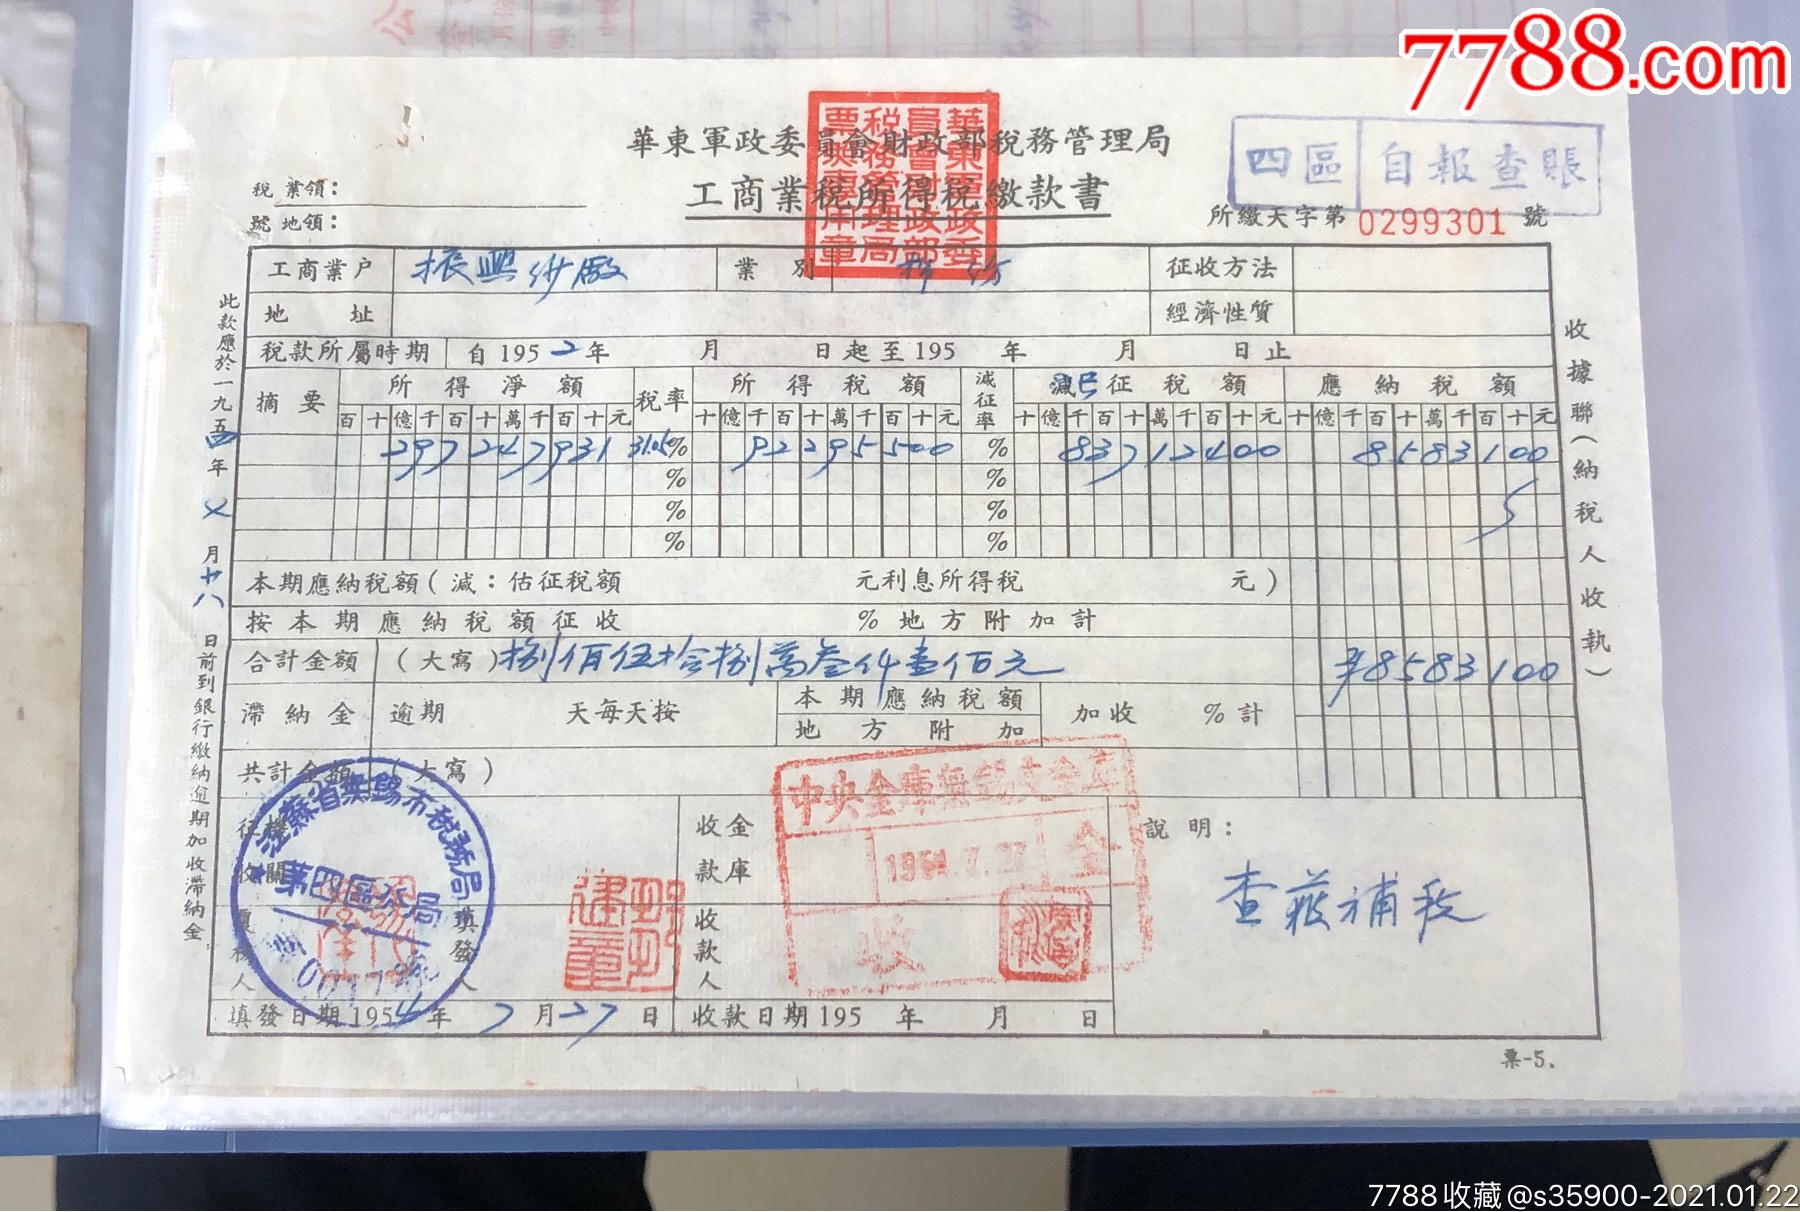 7788.com
華東軍政委員會財政部稅務管理局
工商業稅所得稅繳款書
華東軍政委員會財政部稅務管理局票照專用章
四區 自報查賬
所繳天字第 0299301 號
稅 業領：
號 地領：
工商業户 振興紗廠 業 別 征收方法
地 址 經濟性質
税款所屬時期 自1952年 月 日起至195 年 月 日止
摘 要 所得淨額 税率 所得税額 減征率 減已征税額 應納税額
百十億千百十萬千百十元 十億千百十萬千百十元 十億千百十萬千百十元 十億千百十萬千百十元
297247931 31.05% 92295500 % 83712400 8583100
% %
% %
% %
本期應納税額(減：估征税額 元利息所得税 元)
按本期應納税額征收 %地方附加計
合計金額 (大寫)捌佰伍拾捌萬叁仟壹佰元 8583100
滯納金 逾期 天每天按 本期應納税額 加收 %計
地方附加
共計金額 (大寫)
征收機關
江蘇省無錫市税務局
第四區分局
填發人
收款金庫
中央金庫無錫支金庫
1954.7.27
收
收款人
說明：
查获補税
填發日期1954年7月27日 收款日期195 年 月 日
此款應於一九五四年 月十八日前到銀行繳納逾期加收滯納金
收據聯(納税人收執)
票-5.
7788收藏@s35900-2021.01.22